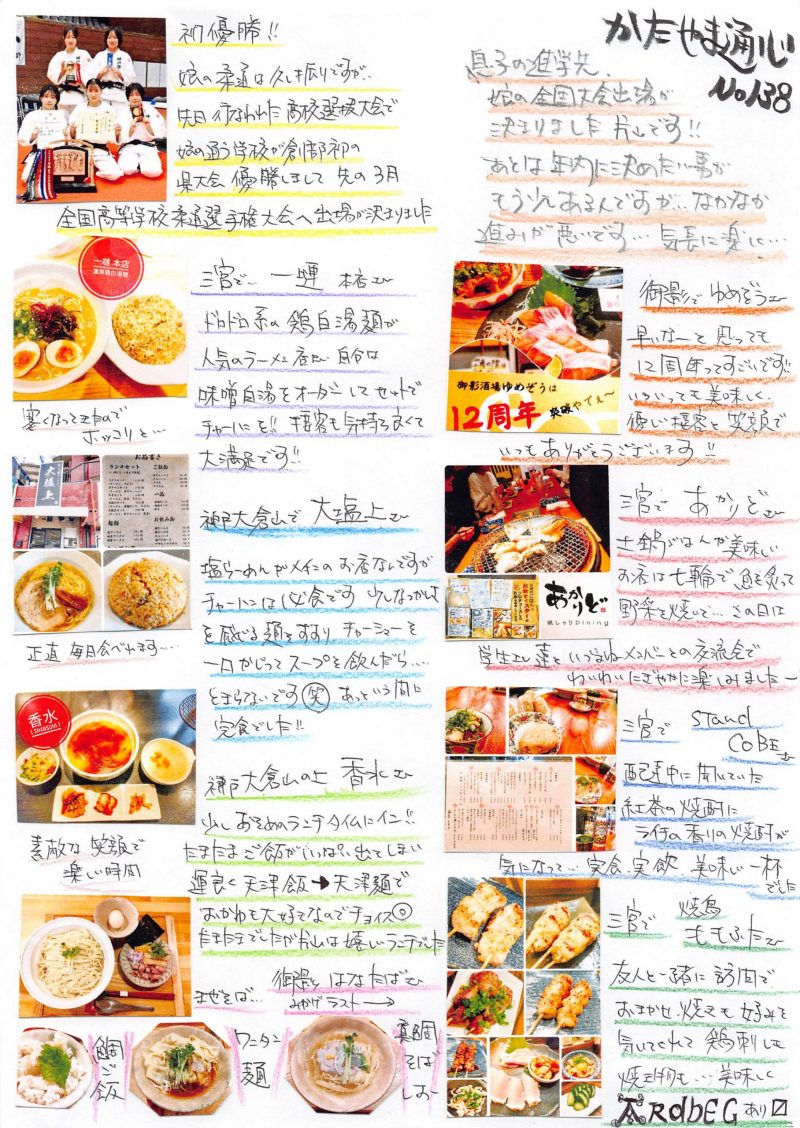 かたやま通心
No138
息子の進学先、
娘の全国大会出場が
決まりました片山です!!
あとは年内に決めたい事が
もう少しあるんですが…なかなか
進みが悪いです…気長に楽しく…
初優勝!!
娘の柔道は久し振りですが、
先日行なわれた高校選抜大会で
娘の通う学校が創部初の
県大会優勝しまして 先の3月
全国高等学校柔道選手権大会へ出場が決まりました
一麺 本店
濃厚鶏白湯麺
寒くなってきたので
ホッコリと…
三宮で…
本店さん
ドロドロ系の鶏白湯麺が
人気のラーメン店さん 自分は
味噌白湯をオーダーしてセットで
チャーハンを!! 接客も気持ち良くて
大満足です!!
大塩上
お品書き
ランチセット
ご飯物
一品
麺類
お飲み物
正直 毎日食べれます…
神戸大倉山で 大塩上さん
塩らーめんがメインのお店なんですが
チャーハンは必食です 少しなつかしさ
を感じる麺をすすり チャーシューを
一口かじってスープを飲んだら…
とまらないです(笑) あっという間に
完食でした!!
香水
(SHANSUI)
素敵な笑顔で
楽しい時間
神戸大倉山の上 香水さん
少しおそめのランチタイムにイン!!
たまたまご飯が出てしまい
運良く天津飯→天津麺で
おかゆも大好きなのでチョイス◎
たまたまでしたが片山は嬉しいランチでした
まぜそば…
御影で はなたばさん
みかげラスト→
鯛ご飯
ワンタン麺
真鯛そばしお〜
御影酒場ゆめぞうは
12周年
突破やでぇ〜
御影でゆめぞうさん
早いなーと思っても
12周年ってすごいです!!
いついっても美味しく、
優しい接客と笑顔で
いつもありがとうございます!!
あかりど
銀しゃりDining
三宮で あかりどさん
土鍋ごはんが美味しい
お店は七輪で魚を炙って
野菜を焼いて…この日は
学生さん達といつものメンバーとの交流会で
わいわいにぎやかに楽しみました〜
三宮で stand
COBEさん
配達中に聞いていた
紅茶の焼酎に
ライチの香りの焼酎が
気になって…実食、実飲 美味しい一杯
でした
三宮で 焼鳥
ももふたさん
友人と一緒に訪問で
おまかせ焼きも好みを
気いてくれて 鶏刺しも
焼き物も…美味しく
ARdbEG あり